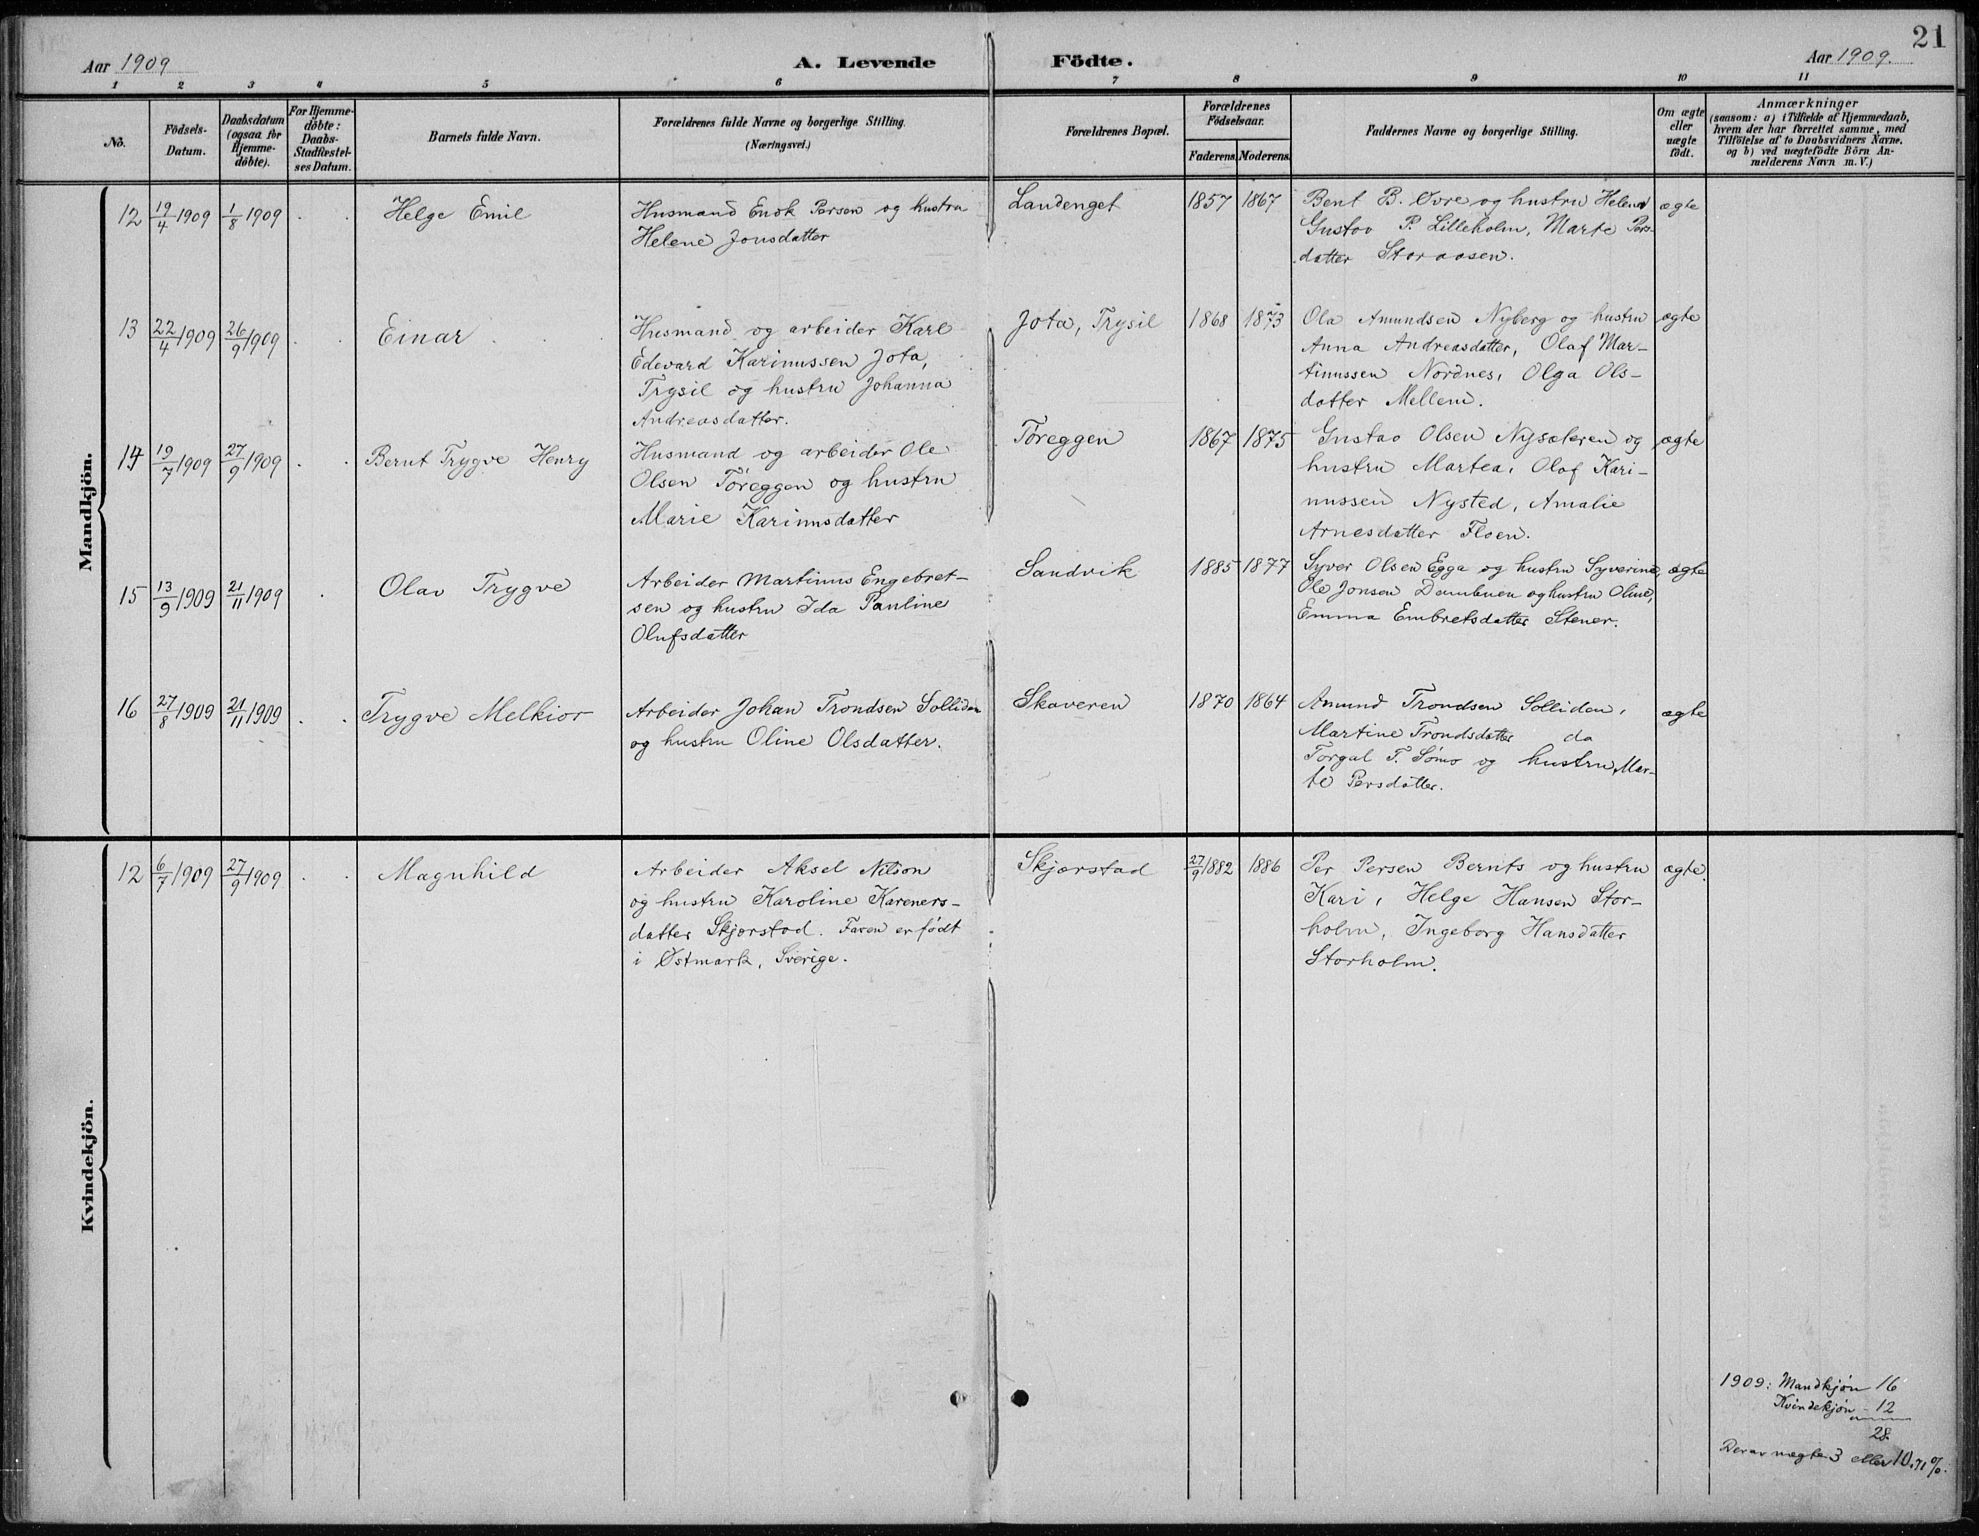 21
Aar 1909
A. Levende Födte.
Aar 1909.
1 2 3 4 5 6 7 8 9 10 11
No.
Födsels-
Datum.
Daabsdatum
(ogsaa for
Hjemme-
döbte).
For Hjemme-
döbte:
Daabs-
Stadfæstel-
ses Datum.
Barnets fulde Navn.
Forældrenes fulde Navne og borgerlige Stilling.
(Næringsvei.)
Forældrenes Bopæl.
Forældrenes
Födselsaar.
Faderens. Moderens.
Faddernes Navne og borgerlige Stilling.
Om ægte
eller
uægte
födt.
Anmærkninger
(saasom: a) i Tilfælde af Hjemmedaab,
hvem der har forrettet samme, med
Tilföielse af to Daabsvidners Navne,
og b) ved uægtefödte Börn An-
melderens Navn m. V.)
Mandkjön.
12 19/4 1909 1/8 1909 Helge Emil
Husmand Enok Persen og hustru
Helene Jonsdatter
Landenget 1857 1867
Bent B. Øvre og hustru Helene
Gustav P. Lilleholm, Marte Pers-
datter Storaasen.
ægte
13 22/4 1909 26/9 1909 Einar
Husmand og arbeider Karl
Edevard Karinussen Jota,
Trysil og hustru Johanna
Andreasdatter.
Jota, Trysil 1868 1873
Ola Amundsen Nyberg og hustru
Anna Andreasdatter, Olaf Mar-
tinussen Nordnes, Olga Ols-
datter Mellem.
ægte
14 19/7 1909 27/9 1909 Bernt Trygve Henry
Husmand og arbeider Ole
Olsen Tøreggen og hustru
Marie Karinusdatter
Tøreggen 1867 1875
Gustav Olsen Nysæteren og
hustru Martea, Olaf Kari-
nussen Nysted, Amalie
Arnesdatter Floen.
ægte
15 13/9 1909 21/11 1909 Olav Trygve
Arbeider Martinus Engebret-
sen og hustru Ida Pauline
Olufsdatter
Sandvik 1885 1877
Syver Olsen Egga og hustru Syverine,
Ole Jonsen Dambuen og hustru Oline,
Emma Embretsdatter Stener.
ægte
16 27/8 1909 21/11 1909 Trygve Melkior
Arbeider Johan Trondsen Solliden
og hustru Oline Olsdatter.
Skaveren 1870 1864
Amund Trondsen Solliden,
Martine Trondsdatter do
Torgal T. Sömo og hustru Mar-
te Persdatter.
ægte
Kvindekjön.
12 6/7 1909 27/9 1909 Magnhild
Arbeider Aksel Nilson
og hustru Karoline Kareners-
datter Skjærstad. Faren er født
i Østmark, Sverige.
Skjærstad 27/9 1882 1886
Per Persen Bernts og hustru
Kari, Helge Hansen Stor-
holm, Ingeborg Hansdatter
Storholm.
ægte.
1909: Mandkjøn 16
Kvindekjøn - 12
28.
Derav uægte 3 eller 10,71 %.